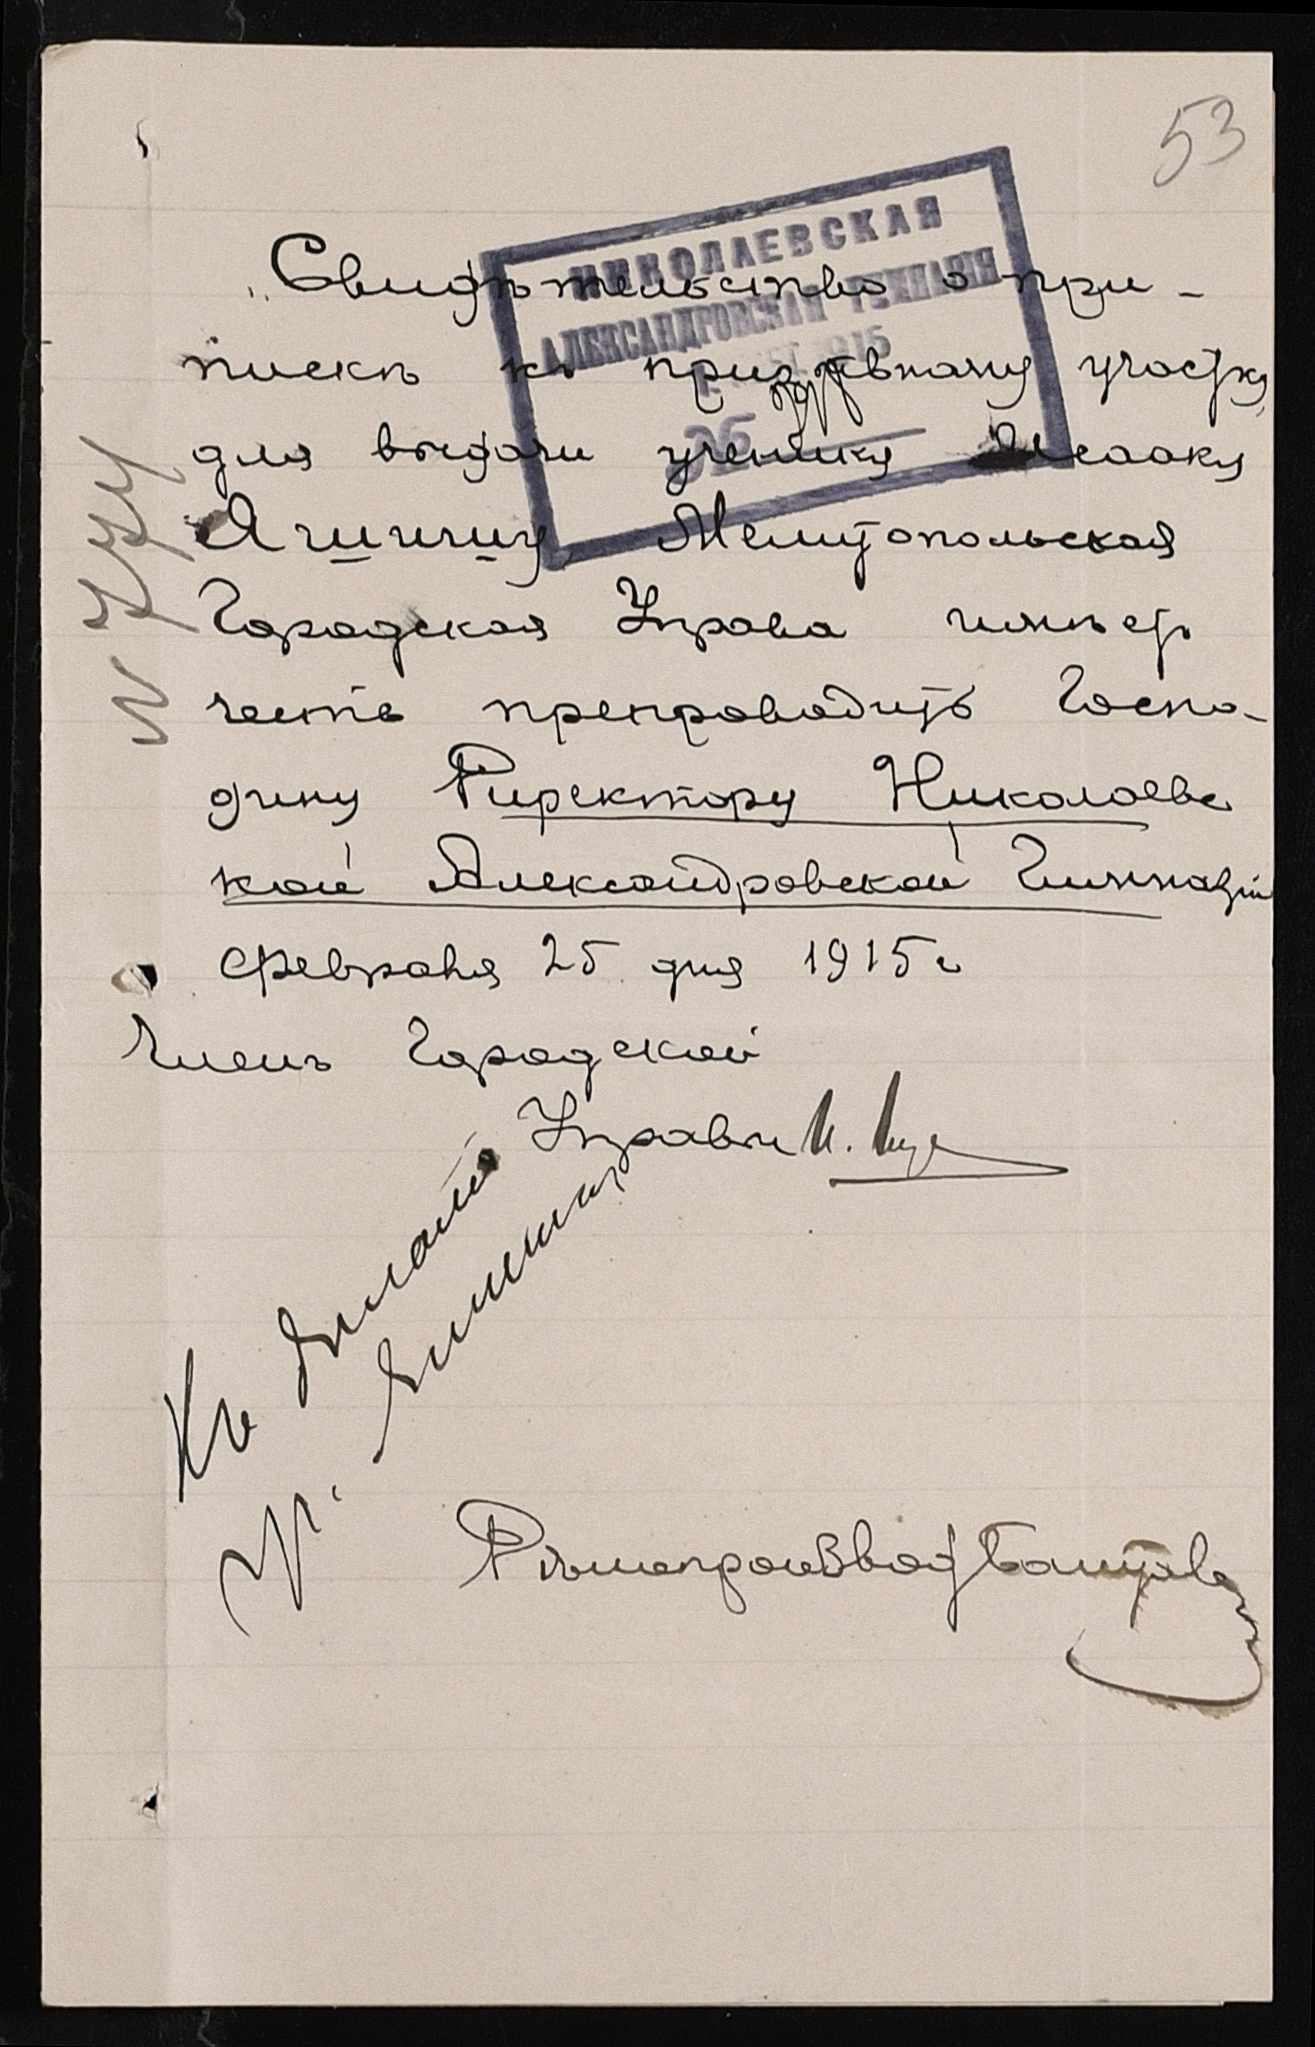 53
НИКОЛАЕВСКАЯ
АЛЕКСАНДРОВСКАЯ ГИМНАЗІЯ
1915
Свидѣтельство о при-
пискѣ къ призывному участку
для выдачи ученику Исааку
Яшичу Мелитопольская
Городская Управа имѣетъ
честь препроводить Госпо-
дину Директору Николаевс
кой Александровской Гимназіи
Февраля 25 дня 1915 г
Членъ Городской
Управы
Къ
Дѣлопроизвод